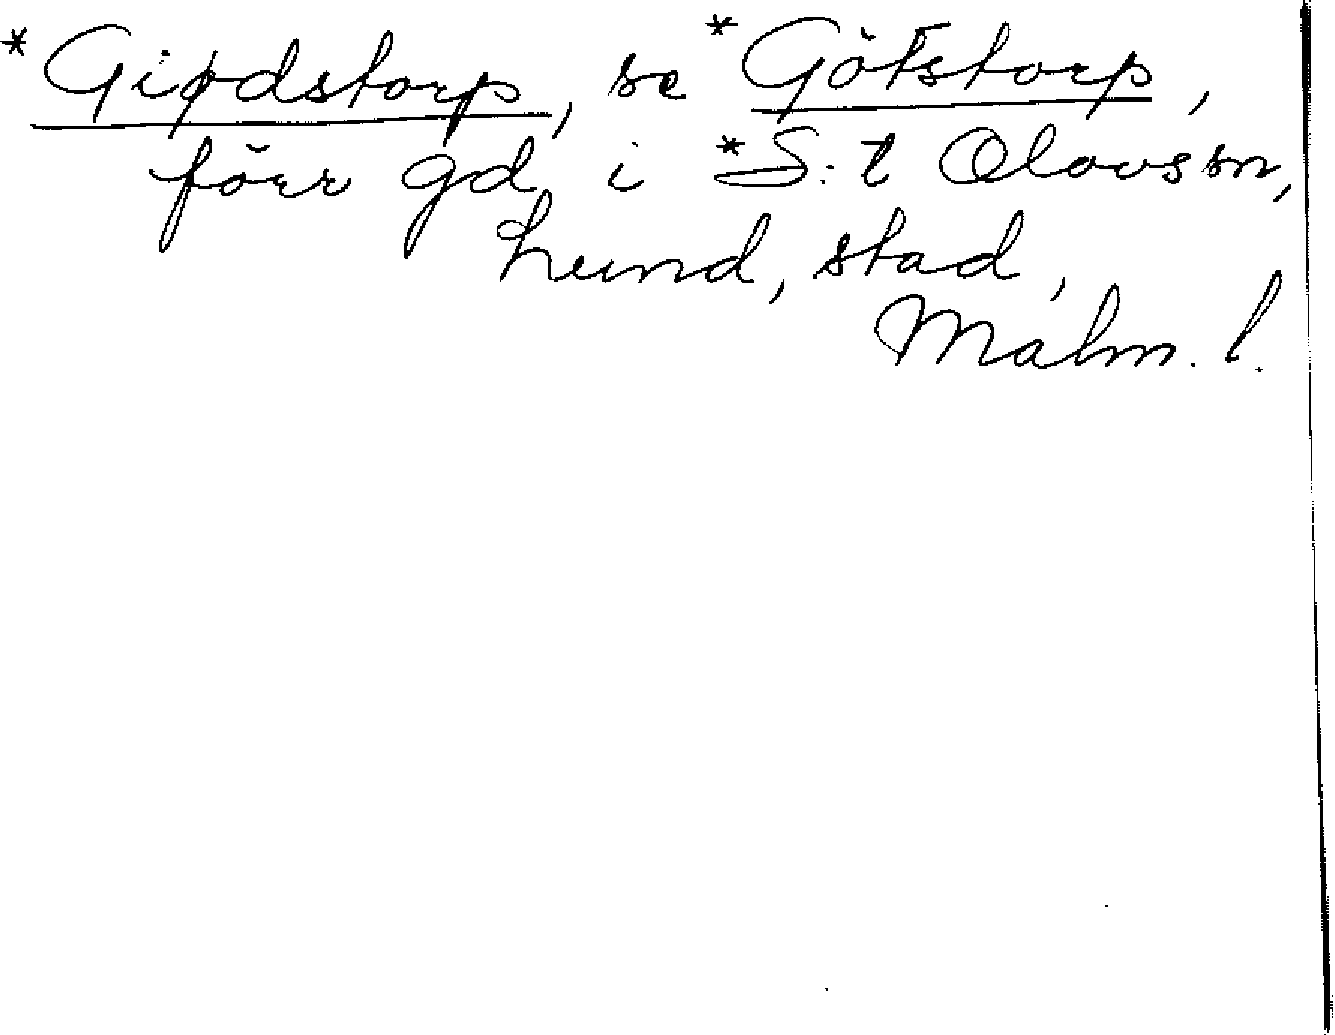 *Giødstorp, se *Götstorp,
förr gd i *S:t Olovs sn,
Lund, stad,
Malm. l.